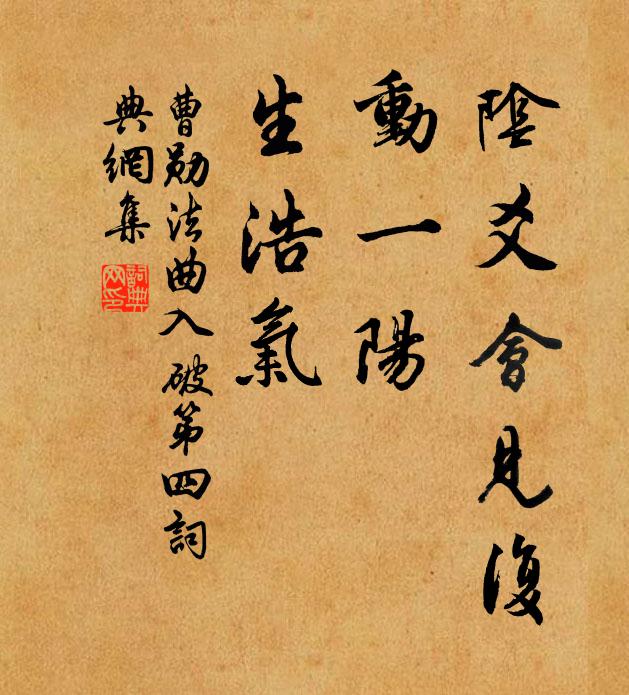 陰爻會見復
動一陽
生浩氣
曹勛法曲入 破第四詞
典網集
詞典網印